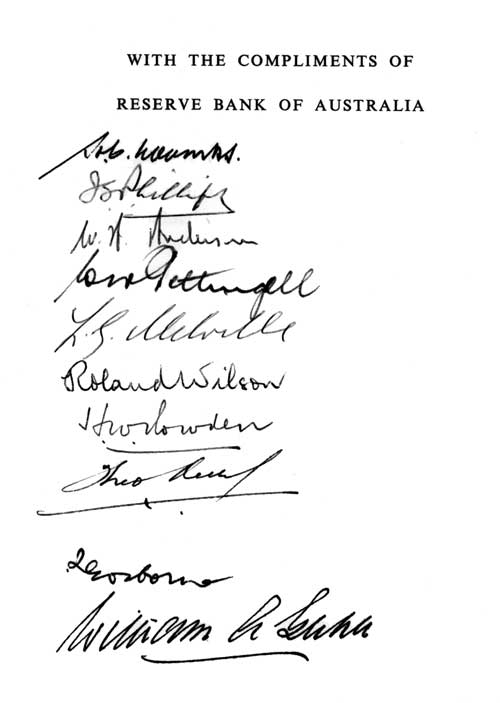 WITH THE COMPLIMENTS OF
RESERVE BANK OF AUSTRALIA
H.C. Coombs.
J G Phillips
W. A. Anderson
Pettingell
L. G. Melville
Roland Wilson
H. W. Rowden
Theo
Osborne
William A Gunn